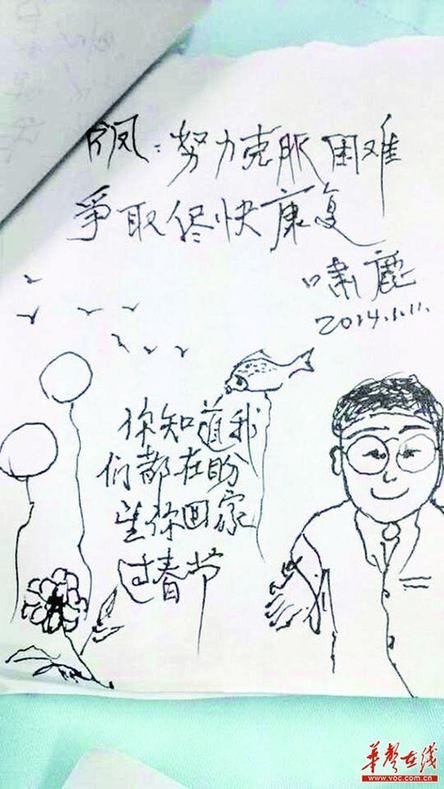 努力克服困难
爭取侭快康复
2014.1.11.
你知道我
们都在盼
望你回家
过春节
华声在线
www.voc.com.cn